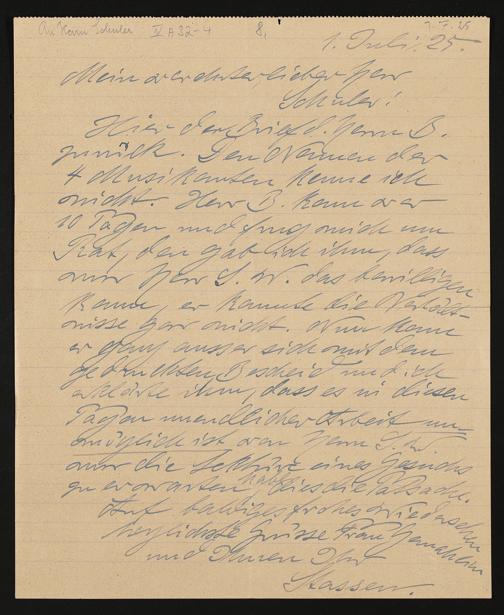 An Herrn Schuler V A 32-4 8, 1.7.25
1. Juli. 25.
Mein verehrter, lieber Herr
Schuler!
Hier der Brief d. Herrn B.
zurück. Den Namen der
4 Musikanten kenne ich
nicht. Herr B. kam vor
10 Tagen und frug mich um
Rat, den gab ich ihm, dass
nur Herr S. W. das bewilligen
kann, er kannte die Verhält-
nisse gar nicht. Nun kam
er ganz ausser sich mit dem
gedruckten Bescheid und ich
erklärte ihm, dass es in diesen
Tagen unendlicher Arbeit un-
möglich ist von Herrn S. W.
nur die Lektüre eines Gesuchs
zu erwarten. dies die Tatsache.
Auf baldiges frohes Wiedersehen
herzlichste Grüsse Frau
und Ihnen Ihr
Stassen.